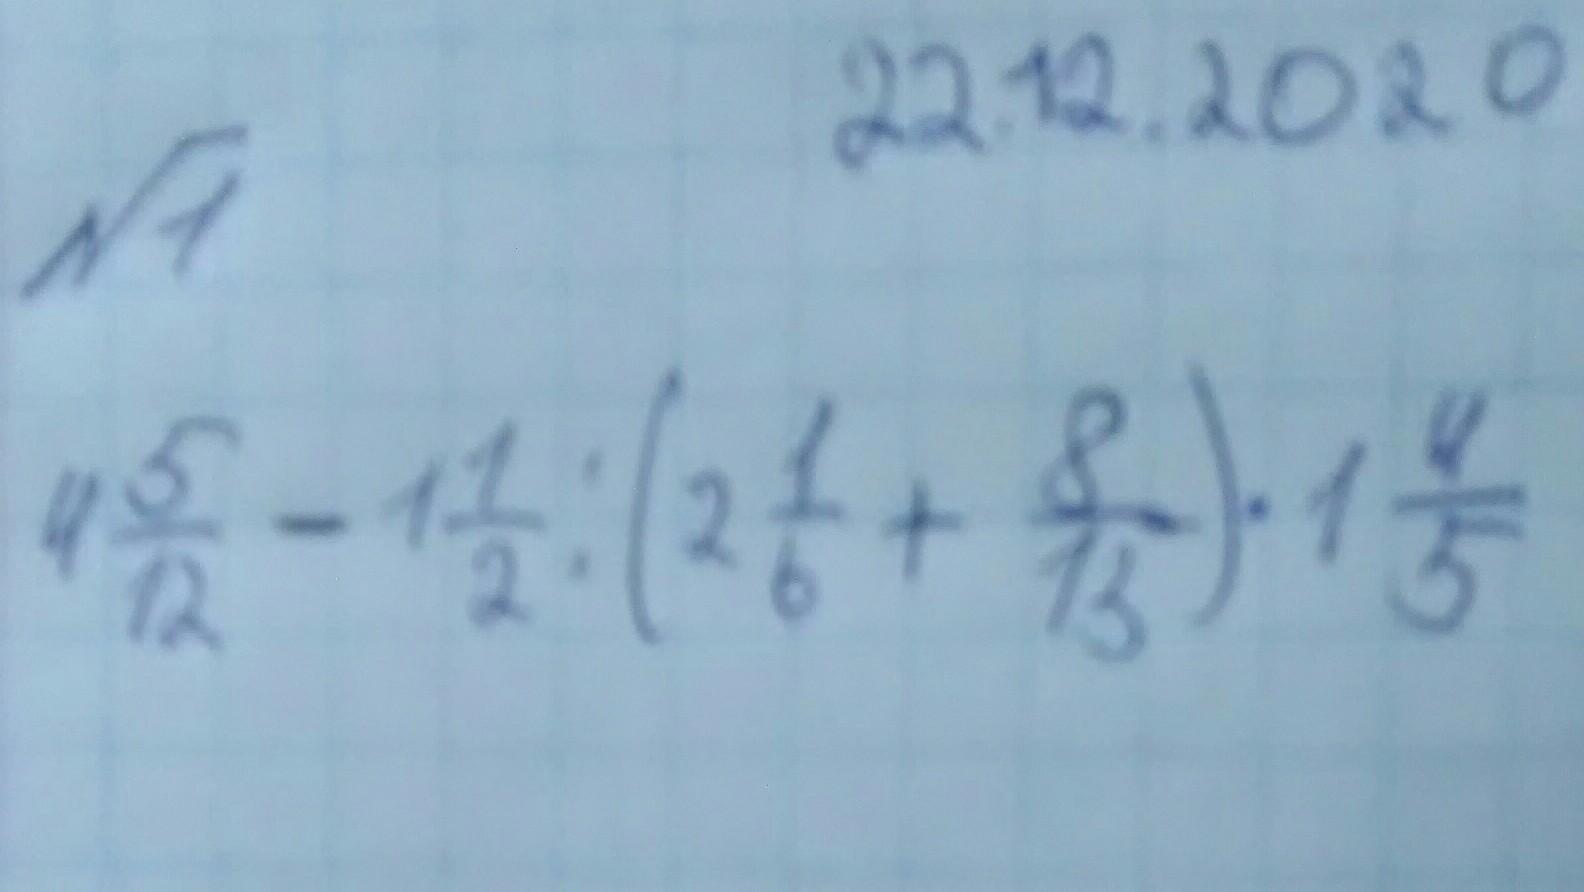 22.12.2020
№1
4 5/12 - 1 1/2 : (2 1/6 + 8/13) · 1 4/5